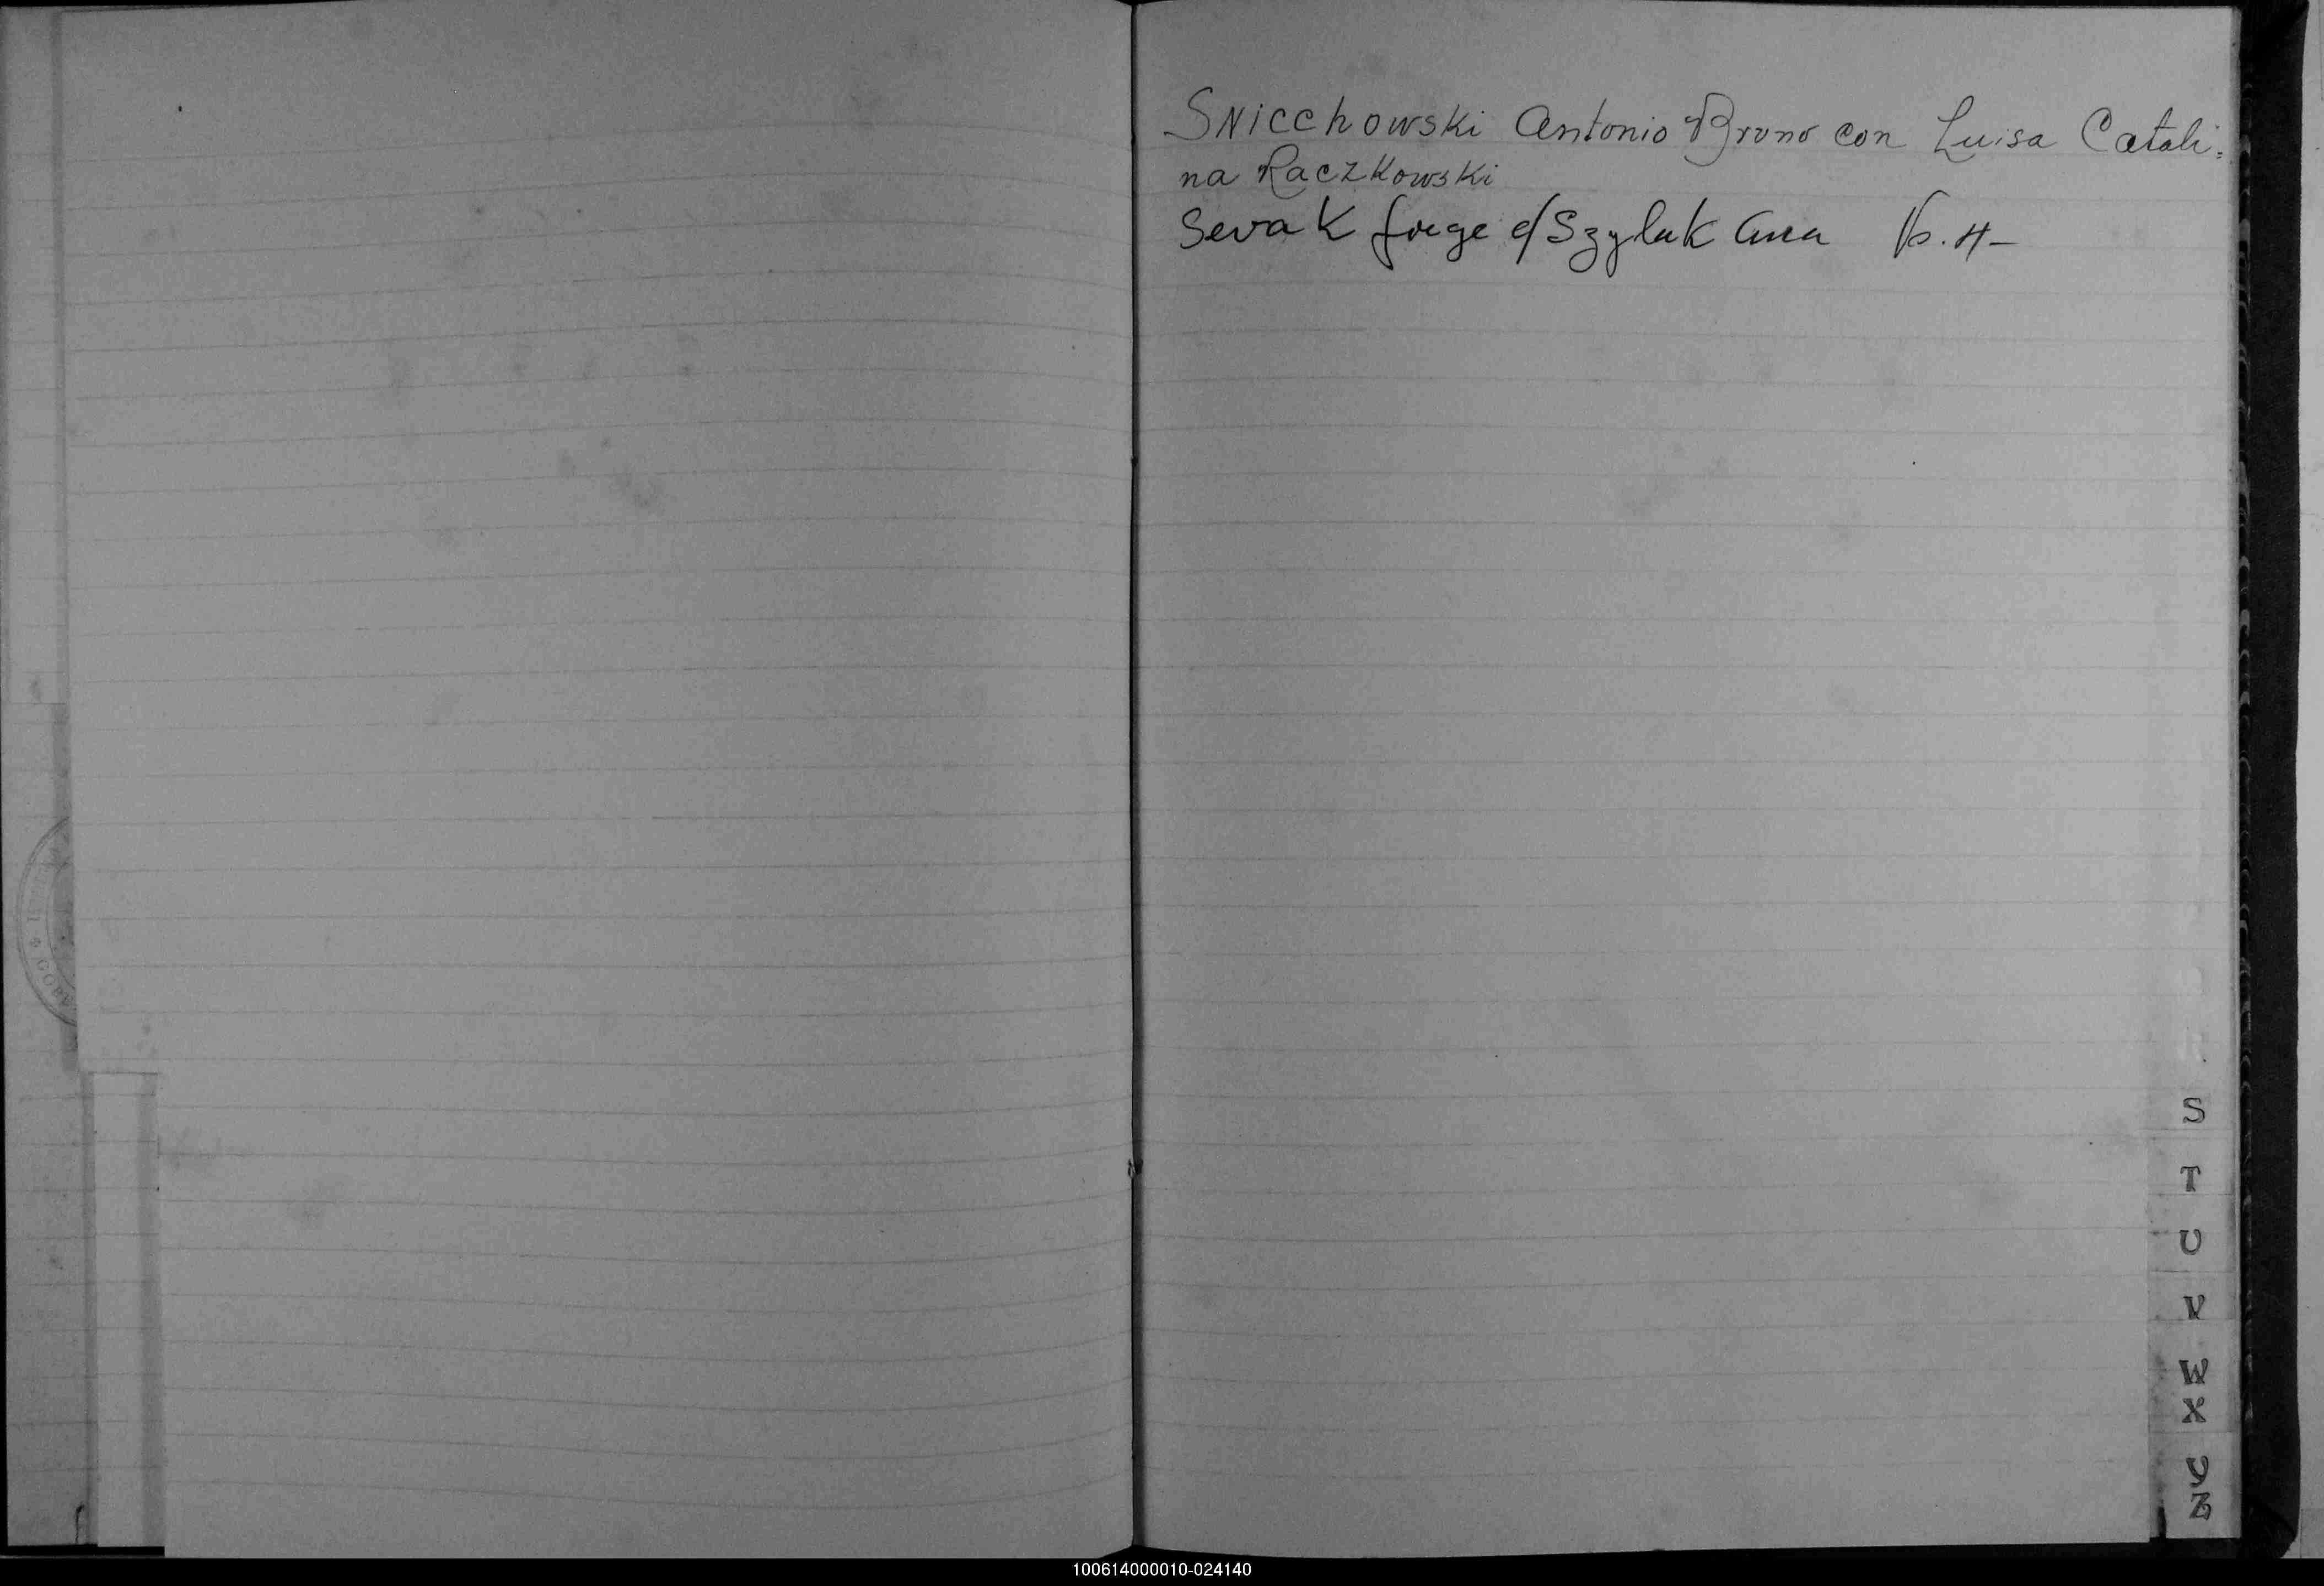 Snicchowski Antonio Bruno con Luisa Catali=
na Raczkowski
Sevak Jorge c/ Szyluk Ana
S
T
U
V
W
X
Y
Z
100614000010-024140